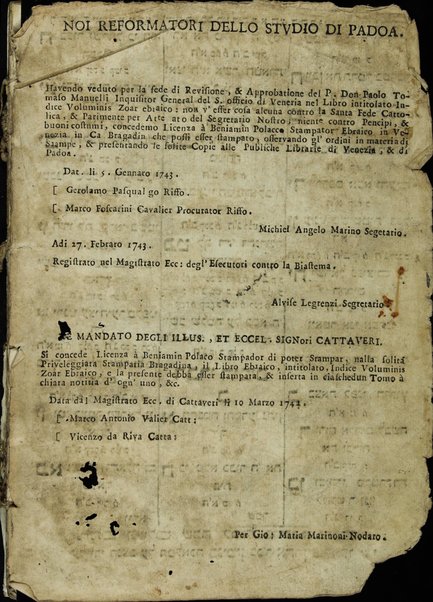 NOI REFORMATORI DELLO STVDIO DI PADOA.
Havendo veduto per la fede di Revisione, & Approbatione del P. Don Paolo To-
maso Manuelli Inquisitor General del S. officio di Veneria nel Libro intitolato In-
dice Voluminis Zoar ebraico: non v'esser cosa alcuna contro la Santa Fede Catto-
lica, & Parimente per Arte ato del Segretario Nostro, niente contro Pencipi, &
buoni costumi, concedemo Licenza à Beniamin Polacco Stampator Ebraico in Ve-
nezia in Ca Bragadin che possi esser stampato, osservando gl' ordini in materia di
Stampe, & presentando le solite Copie alle Publiche Librarie di Venezia, & di
Padoa.
Dat. li 5. Gennaro 1743.
[ Gerolamo Pasqual go Riffo.
[ Marco Foscarini Cavalier Procurator Riffo.
Michiel Angelo Marino Segetario.
Adi 27. Febraro 1743.
Registrato nel Magistrato Ecc: degl'Esecutori contro la Biastema.
Alvise Legrenzi Segretario
MANDATO DEGLI ILLUS. , ET ECCEL: SIGNori CATTAVERI.
Si concede Licenza à Beniamin Polaco Stampador di poter Stampar, nalla solita
Priveleggiata Stamparia Bragadina, il Libro Ebraico, intitolato, Indice Voluminis
Zoar Ebraico, e la presente debba esser stampata, & inserta in ciaschedun Tomo à
chiara notitia d'ogn' uno, &c.
Data dal Magistrato Ecc. di Cattaveri li 10 Marzo 1742.
[ Marco Antonio Valier Catt:
[ Vicenzo da Riva Catta:
Per Gio: Maria Marinoni Nodaro.